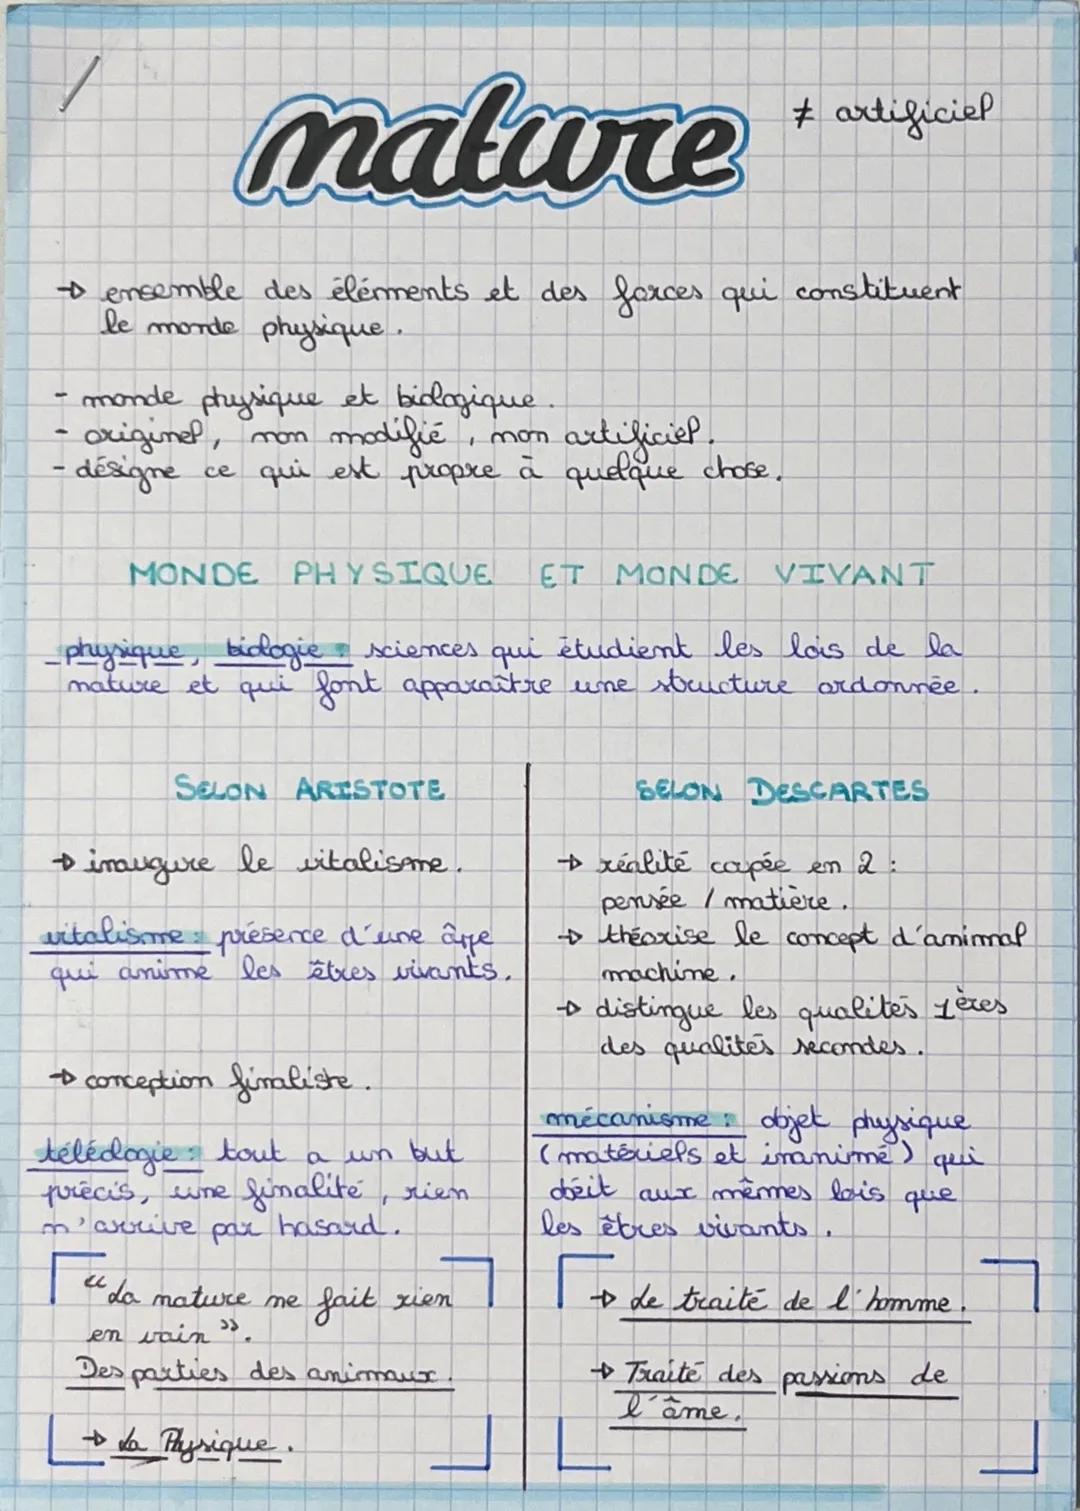 nature
≠ artificiel
→ ensemble des éléments et des forces qui constituent
le monde physique.
- monde physique et biologique.
- originel, non modifié, non artificiel.
- désigne ce qui est propre à quelque chose.
MONDE PHYSIQUE ET MONDE VIVANT
physique, biologie : sciences qui étudient les lois de la
nature et qui font apparaître une structure ordonnée.
SELON ARISTOTE
→ inaugure le vitalisme.
vitalisme : présence d'une âme
qui anime les êtres vivants.
→ conception finaliste.
téléologie : tout a un but
précis, une finalité, rien
n'arrive par hasard.
“La nature ne fait rien
en vain”.
Des parties des animaux.
→ La Physique.
SELON DESCARTES
→ réalité coupée en 2 :
pensée / matière.
→ théorise le concept d'animal
machine.
→ distingue les qualités 1ères
des qualités secondes.
mécanisme : objet physique
(matériels et inanimé) qui
obéit aux mêmes lois que
les êtres vivants.
→ Le traité de l'homme.
→ Traité des passions de
l'âme.